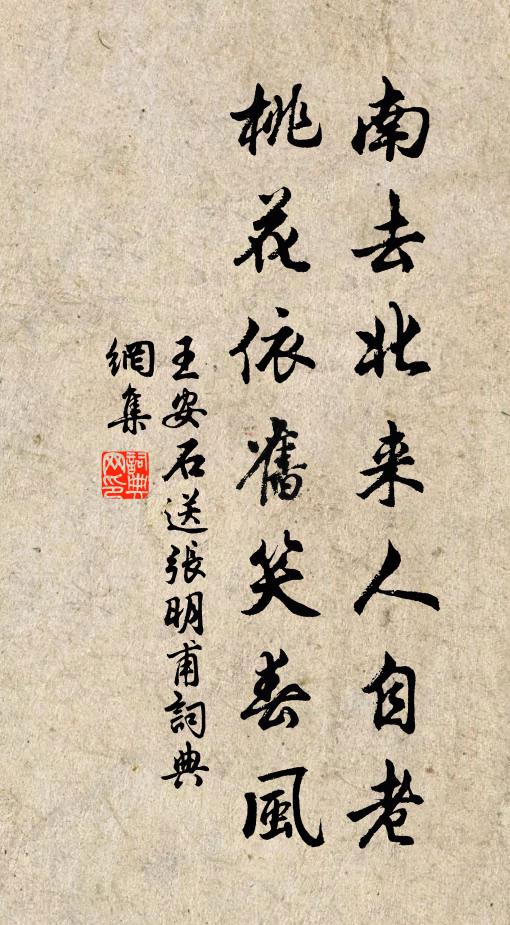 南去北来人自老
桃花依舊笑春風
王安石送張明甫詞典
網集
詞典
网印